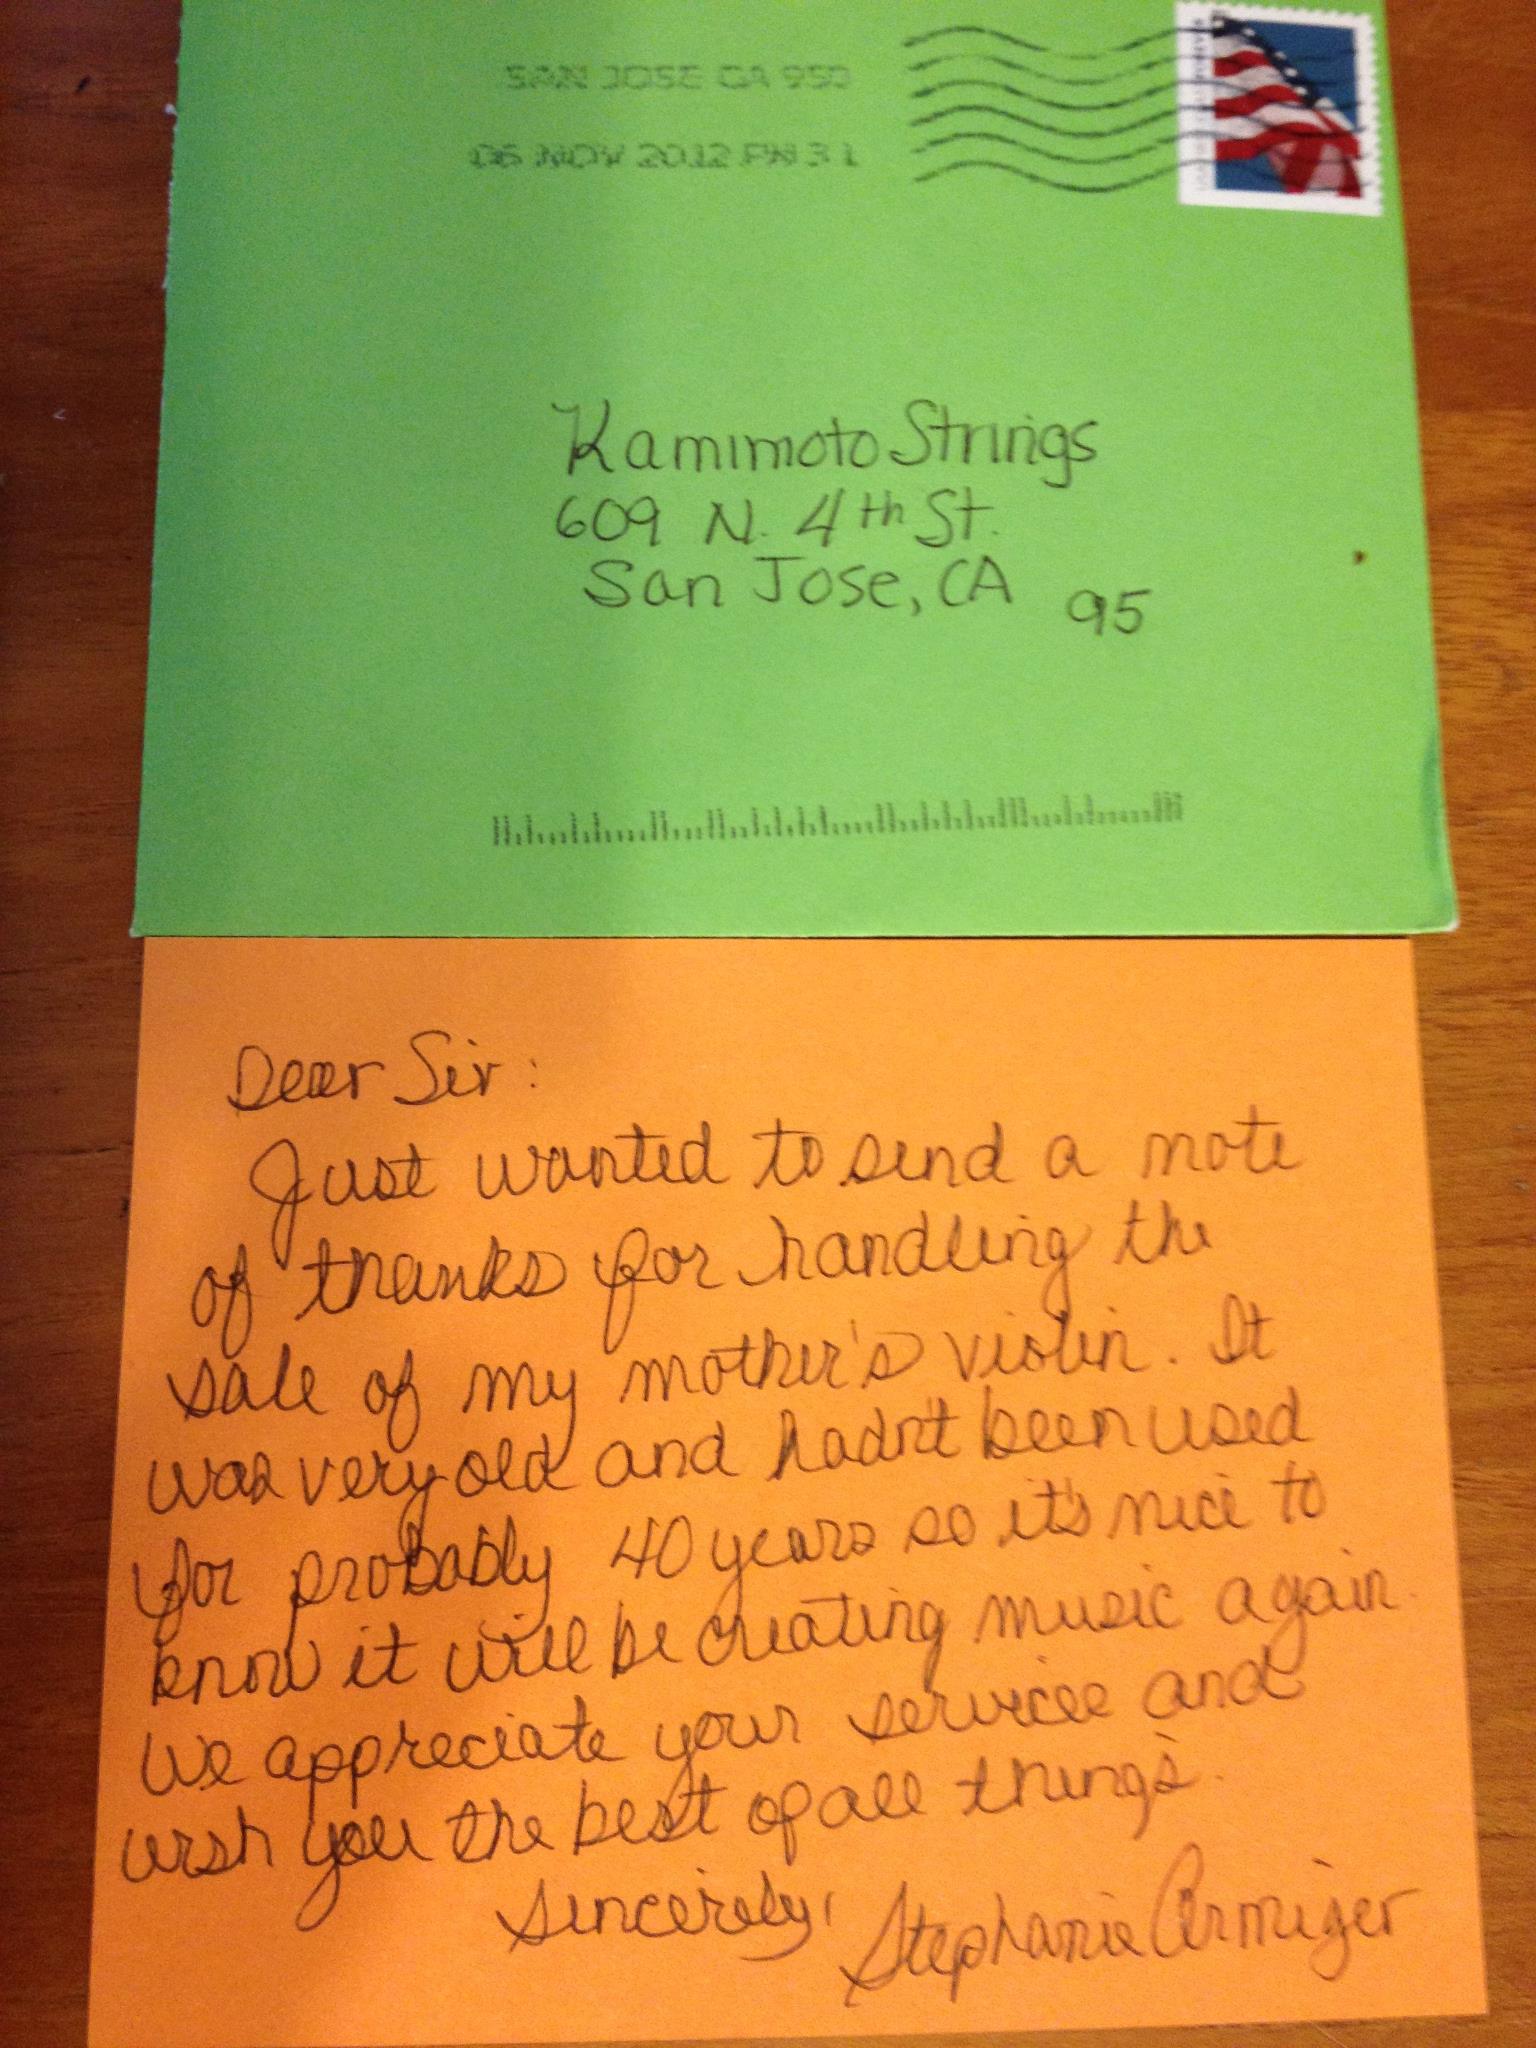 SAN JOSE CA 950
06 NOV 2012 PM 3 L
Kamimoto Strings
609 N. 4th St.
San Jose, CA 95
Dear Sir:
Just wanted to send a note
of thanks for handling the
sale of my mother's violin. It
was very old and hadn't been used
for probably 40 years so it's nice to
know it will be creating music again.
We appreciate your service and
wish you the best of all things.
Sincerely, Stephanie Armizer